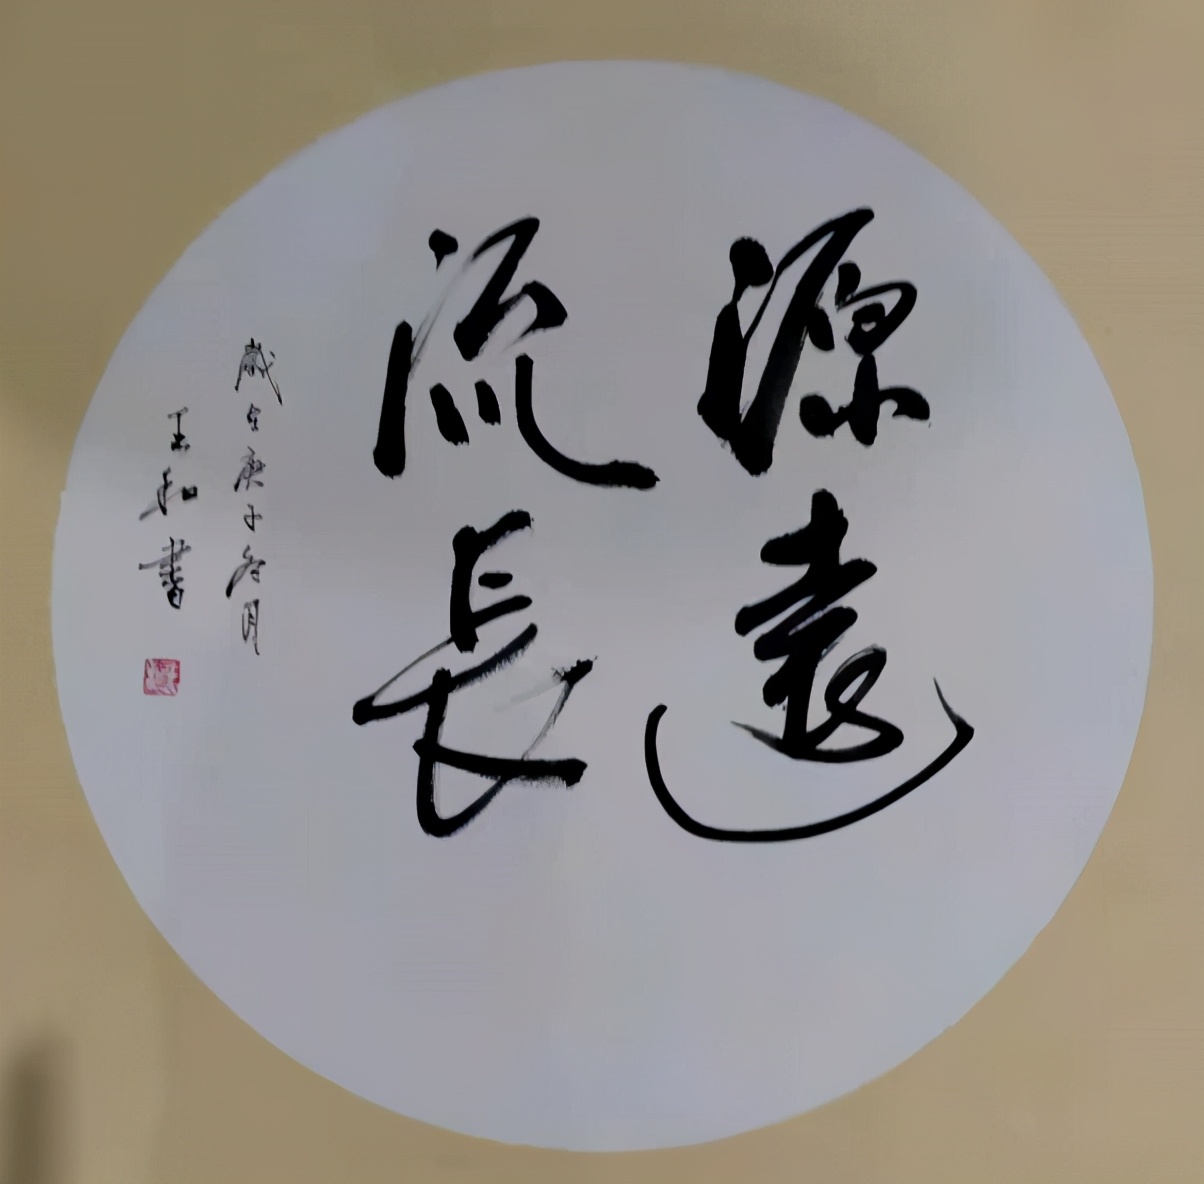 源遠
流長
歲在庚子冬月
王和書